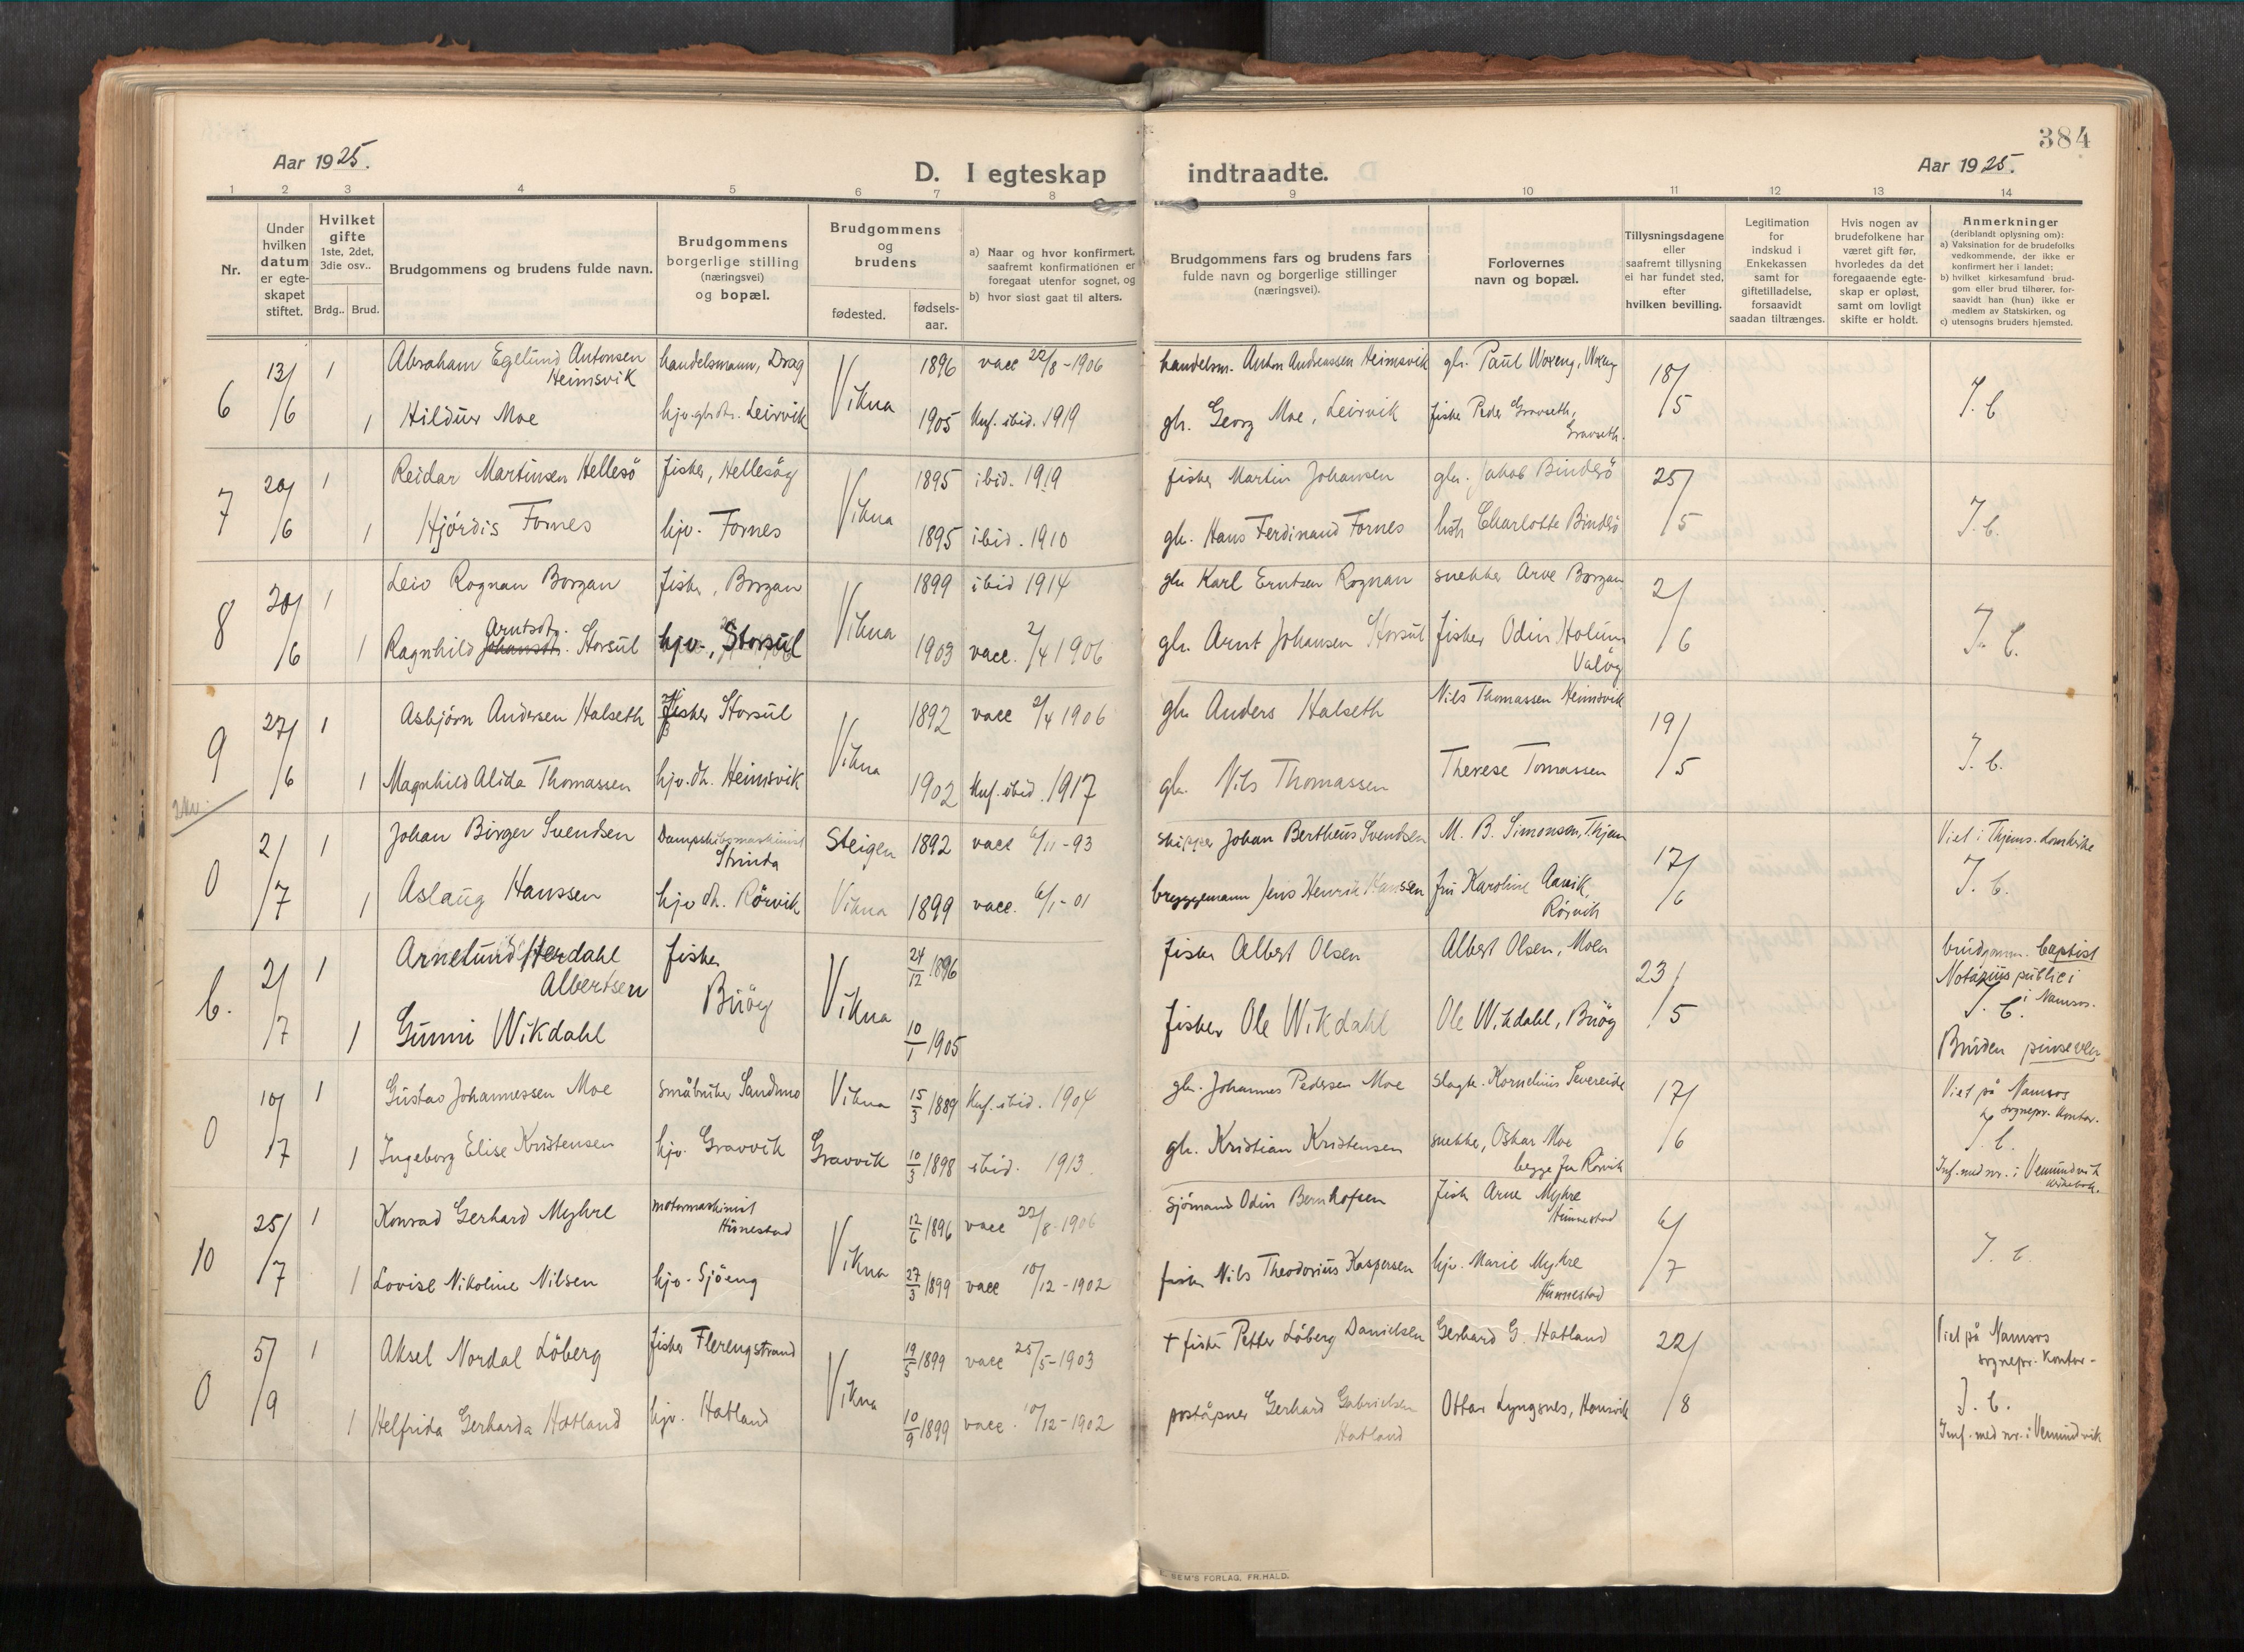 384
Aar 1925.
D. I egteskap indtraadte.
Aar 1925.
1 2 3 4 5 6 7 8 9 10 11 12 13 14
Nr.
Under hvilken datum er egteskapet stiftet.
Hvilket gifte 1ste, 2det, 3die osv..
Brdg.. Brud.
Brudgommens og brudens fulde navn.
Brudgommens borgerlige stilling (næringsvei) og bopæl.
Brudgommens og brudens
fødested. fødselsaar.
a) Naar og hvor konfirmert, saafremt konfirmationen er foregaat utenfor sognet, og
b) hvor sidst gaat til alters.
Brudgommens fars og brudens fars fulde navn og borgerlige stillinger (næringsvei).
Forlovernes navn og bopæl.
Tillysningsdagene eller saafremt tillysning ei har fundet sted, efter hvilken bevilling.
Legitimation for indskud i Enkekassen samt for giftetilladelse, forsaavidt saadan tiltrænges.
Hvis nogen av brudefolkene har været gift før, hvorledes da det foregaaende egteskap er opløst, samt om lovligt skifte er holdt.
Anmerkninger (deriblandt oplysning om):
a) Vaksination for de brudefolks vedkommende, der ikke er konfirmert her i landet;
b) hvilket kirkesamfund brudgom eller brud tilhører, forsaavidt han (hun) ikke er medlem av Statskirken, og
c) utensogns bruders hjemsted.
6 13/6 1 Abraham Egelund Antonsen Heimsvik handelsmann, Drag Vikna 1896 vacc 22/8-1906 handelsm. Anton Andreassen Heimsvik gbr. Paul Woxeng, Woxeng 18/5 J. C.
1 Hildur Moe hjv. gbr.dtr. Leirvik 1905 Knf. ibid. 1919 gbr. Georg Moe, Leirvik fisker Peder Gravseth, Gravseth.
7 20/6 1 Reidar Martinsen Hellesö fisker, Hellesöy Vikna 1895 ibid. 1919 fisker Martin Johansen gbr. Jakob Bindsö 25/5 J. C.
1 Hjördis Fornes hjv. Fornes 1895 ibid. 1910 gbr. Hans Ferdinand Fornes Charlotte Bindsö
8 20/6 1 Leiv Rognan Borgan fisker, Borgan Vikna 1899 ibid 1914 gbr Karl Erntsen Rognan snekker Arve Borgan 2/6 J. C.
1 Ragnhild Johansdtr. Arntsdtr. Storsul hjv., Storsul 1903 vacc. 2/4 1906 gbr. Arnt Johansen Storsul fisker Odin Holum Valöy
9 27/6 1 Asbjörn Andersen Halseth fisker Storsul Vikna 1892 vacc 2/4 1906 gbr Anders Halseth Nils Thomassen Heimsvik 19/5 J. C.
1 Magnhild Alida Thomassen hjv. dtr. Heimsvik 1902 Knf. ibid. 1917 gbr. Nils Thomassen Therese Tomassen
0 2/7 1 Johan Birger Svendsen Dampskibsmaskinist Strinda Steigen 1892 vacc 6/11-93 skipper Johan Bertheus Svendsen M. B. Simonsen, Thjem 17/6 Viet i Thjems. domkirke J. C.
1 Aslaug Hanssen hjv dtr. Rörvik Vikna 1899 vacc. 6/1-01 bryggemann Jens Henrik Hanssen fru Karoline Aavik Rörvik
b. 2/7 1 Arnelund Herdahl Albertsen fisker Buöy Vikna 24/12 1896 fisker Albert Olsen Albert Olsen, Moen 23/5 brudgomm. baptist Notarius publici i Namsos. J. C.
1 Gunni Wikdahl 10/1 1905 fisker Ole Wikdahl Ole Wikdahl, Buöy Bruden pinseven
0 10/7 1 Gustav Johannessen Moe småbruker Sandmo Vikna 15/3 1889 Knf. ibid. 1904 gbr. Johannes Pedersen Moe slagt. Kornelius Severeide 17/6 Viet på Namsos sognepr. kontor. J. C.
1 Ingeborg Elise Kristensen hjv. Gravvik Gravvik 10/3 1898 ibid. 1913. gbr. Kristian Kristensen snekker, Oskar Moe begge fra Rörvik Inf. med nr. i Vemundvik
10 25/7 1 Konrad Gerhard Myhre motormaskinist Hunnestad Vikna 12/6 1896 vacc 22/8-1906 sjömand Odin Bernhofsen fisk Arne Myhre Hunnestad 6/7 J. C.
1 Lovise Nikoline Nilsen hjv. Sjöeng 27/3 1899 vacc 10/12-1902 fisker Nils Theodorius Kaspersen hjv. Marie Myhre Hunnestad
0 5/9 1 Aksel Nordal Löberg fisker Flerengstrand Vikna 19/5 1899 vacc 25/5-1903 + fisker Petter Löberg Danielsen Gerhard G. Hatland 22/8 Viet på Namsos sognepr. kontor- J. C.
1 Helfrida Gerharda Hatland hjv. Hatland 10/9 1899 vacc. 10/12-1902 poståpner Gerhard Gabrielsen Hatland Ottar Lyngsnes, Hansvik Inf. med nr. i Vemundvik
SEM'S FORLAG, FR.HALD.